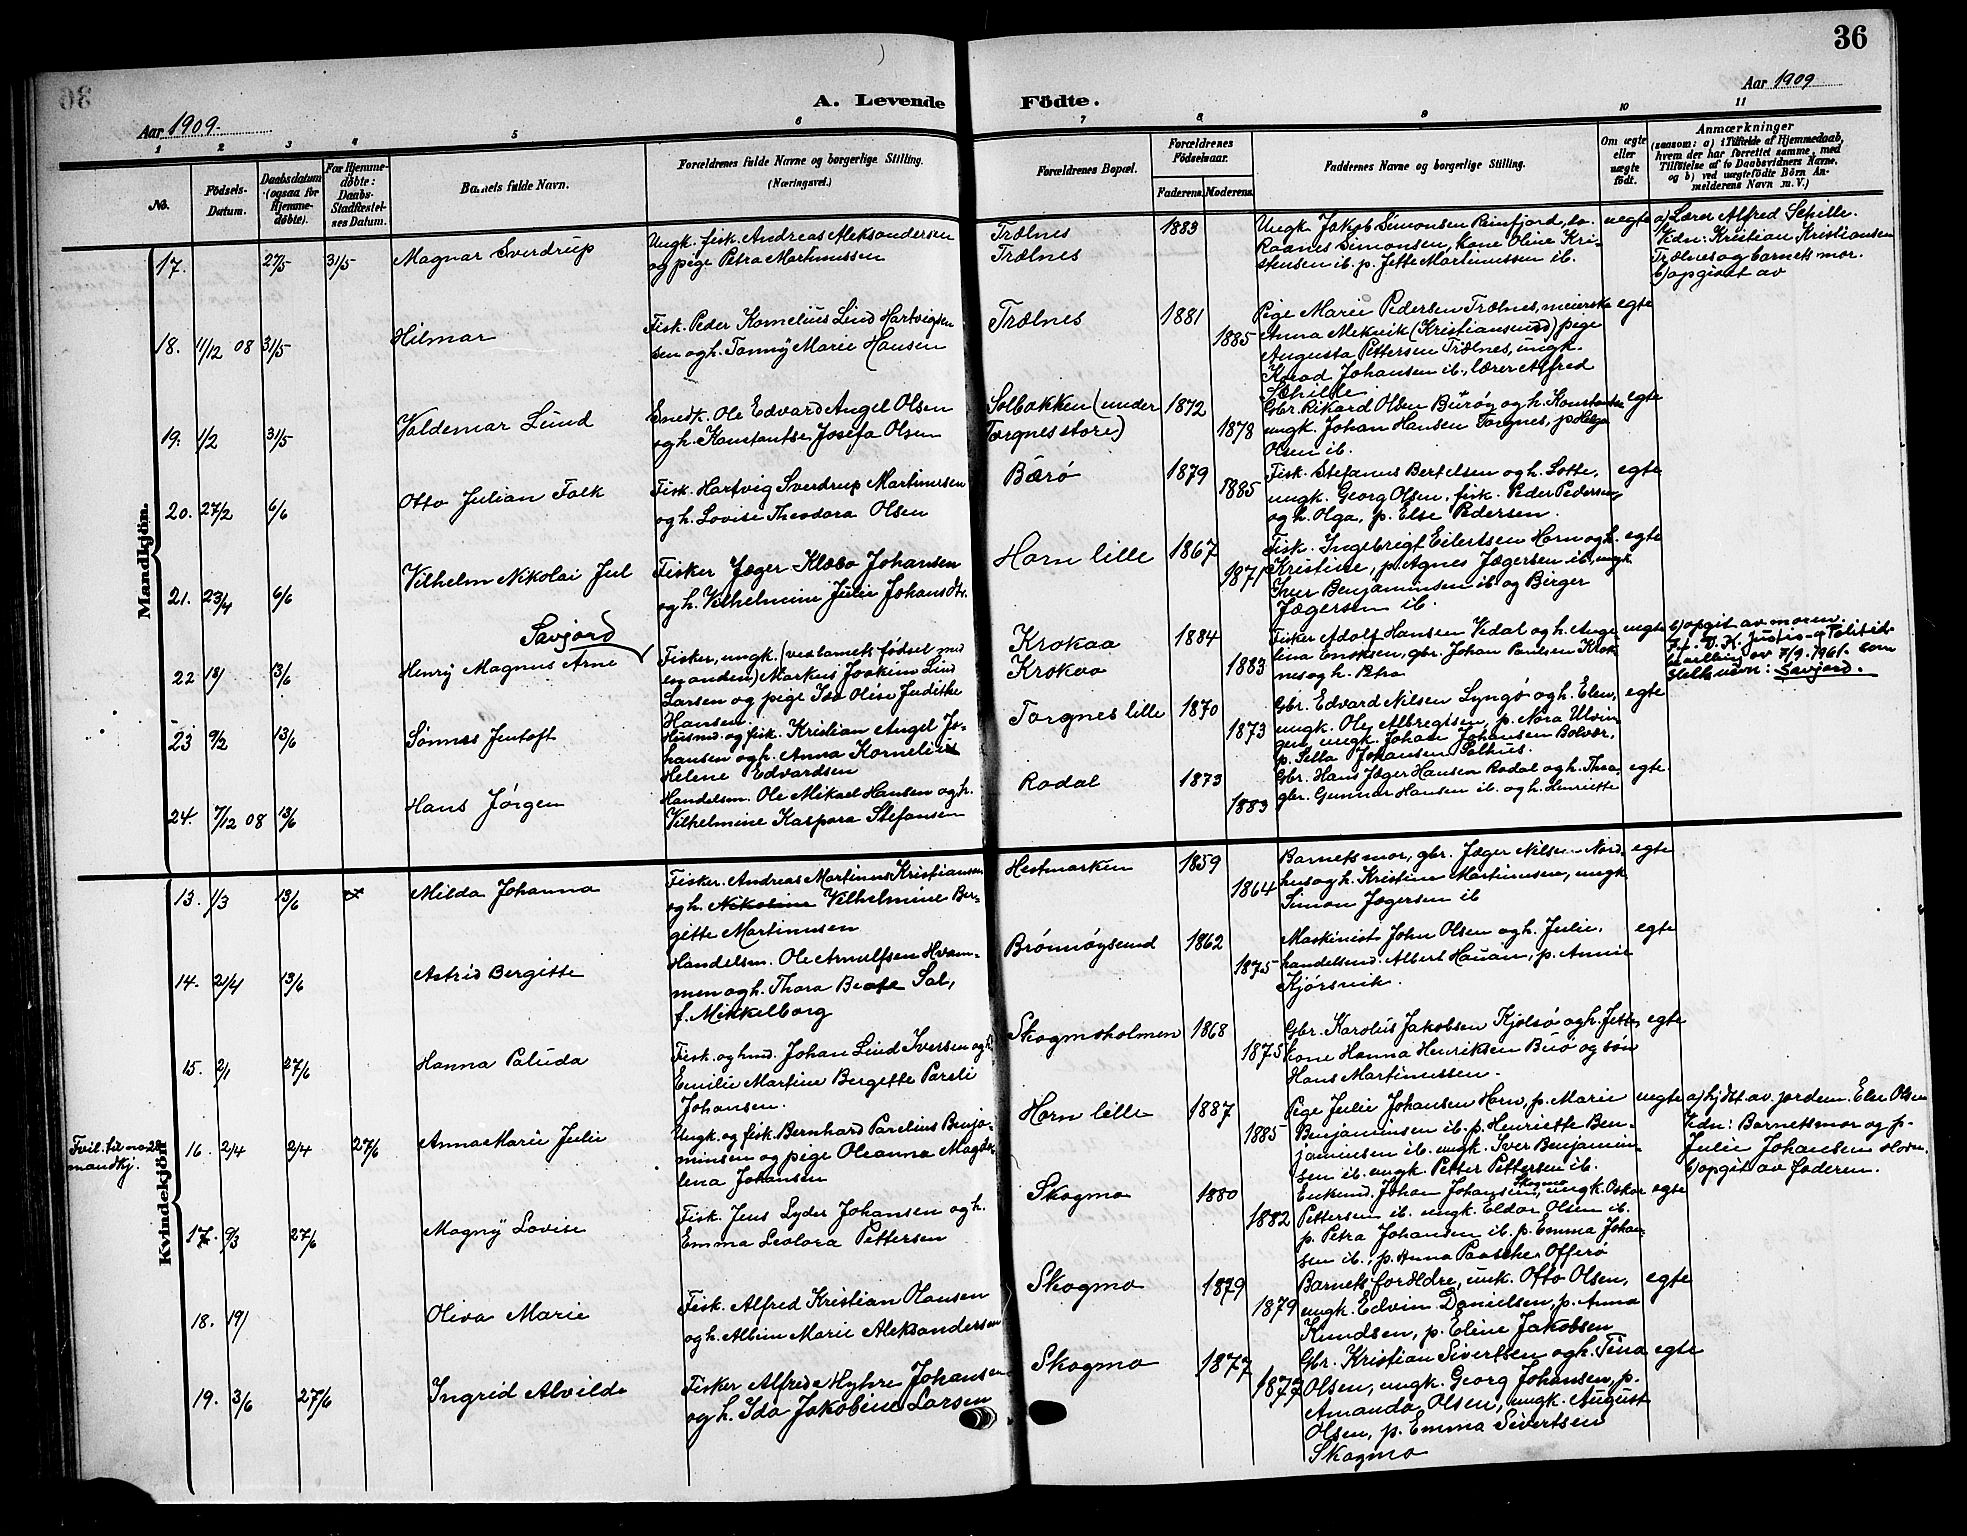 36
A. Levende Födte.
Aar 1909.
Aar 1909
1 2 3 4 5 6 7 8 9 10 11
No.
Födsels-Datum.
Daabsdatum (ogsaa for Hjemmedöbte).
For Hjemmedöbte: Daabs-Stadfæstelses Datum.
Barnets fulde Navn.
Forældrenes fulde Navne og borgerlige Stilling.
(Næringsvei.)
Forældrenes Bopæl.
Forældrenes Födselsaar.
Faderens. Moderens.
Faddernes Navne og borgerlige Stilling.
Om ægte eller uægte födt.
Anmærkninger
(saasom: a) i Tilfælde af Hjemmedaab,
hvem der har forrettet samme, med
Tilföielse af to Daabsvidners Navne,
og b) ved uægtefödte Börn Anmelderens Navn m. V.)
Mandkjön.
17. 27/5 31/5 Magnar Sverdrup
Ungk. fisk. Andreas Aleksandersen
og pige Petra Martinussen
Trælnes
Trælnes
1883
Ungk. Jakob Simonsen Reinfjord, do.
Raanes Simonsen, kone Oline Kri-
stensen ib. p. Jette Martinussen ib.
uegte
a) Lærer Alfred Schille.
Vidn: Kristian Kristiansen
Trælnes og barnets mor.
b) opgivet av
18. 11/12 08 31/5 Hilmar
Fisk. Peder Kornelius Lind Hartvigsen
sen og h. Tonny Marie Hansen
Trælnes
1881
1885
Pige Marie Pedersen Trælnes, meierske
Anna Meknik (Kristiansund) pige
Augusta Pettersen Trælnes, ungk.
Konrad Johansen ib., lærer Alfred
Schille
egte
19. 1/2 31/5 Valdemar Lund
Snedk. Ole Edvard Angel Olsen
og h. Konstantse Josefa Olsen
Solbakken (under
Torgnes store)
1872
1878
Gbr. Rikard Olsen Burøy og h. Konstantse
ungk. Johan Hansen Torgnes, p. Helga
Olsen ib.
egte
20. 27/2 6/6 Otto Julian Falk
Fisk. Hartvig Sverdrup Martinussen
og h. Lovise Theodora Olsen
Bærø
1879
1885
Fisk. Stefanus Bertelsen og h. Lotte,
ungk. Georg Olsen, fisk. Peder Pedersen
og h. Olga, p. Else Pedersen.
egte
21. 23/4 6/6 Vilhelm Nikolai Jul
Fisker Jæger Klæbo Johansen
og h. Vilhelmine Julie Johansdtr.
Horn lille
1867
1871
Fisk. Ingebrigt Eilertsen Horn og h.
Kristine, p. Agnes Jægersen ib., ungk.
Iver Benjaminsen ib. og Birger
Jægersen ib.
egte
Savjord
22 18/1 13/6 Henry Magnus Arne
Fisker, ungk. (ved barnets fødsel med
en anden) Markus Joakim Lind
Larsen og pige Ida Olise Judithe
Hansen.
Krokaa
Krokaa
1884
1883
Fisker Adolf Hansen Vedal og h. Ange
lina Enoksen, gbr. Johan Paulsen Krok
nes og h. Petra
uegte
b) opgit av moren.
Justis- og Politid-
av 7/9. 1961. som
slektsnavn: Savjord.
23 9/2 13/6 Sønnes Jentoft
Husmd. og fisk. Kristian Angel Jo-
hansen og h. Anna Kornelie
Helene Edvardsen
Torgnes lille
1870
1873
Gbr. Edvard Nilsen Lyngø og h. Elen,
ungk. Ole Albregtsen, p. Nora Ulvin
gen, ungk. Johan Johansen Bolvær,
p. Setta Johansen Salhus.
egte
24. 7/12 08 13/6 Hans Jørgen
Handelsm. Ole Mikael Hansen og h.
Vilhelmine Kaspara Stefansen
Rodal
1873
1883
Gbr. Hans Jæger Hansen Rodal og h. Thea,
gbr. Gunnar Hansen ib. og h. Henriette
egte.
Kvindekjön
13. 1/3 13/6 Milda Johanna
Fisker. Andreas Martinus Kristiansen
og h. Nikoline Vilhelmine Ber-
gitte Martinusen
Hestmarken
1859
1864
Barnets mor, gbr. Jæger Nilsen Nord
hus og h. Kristine Martinusen, ungk
Simon Jægersen ib
egte
14. 21/4 13/6 Astrid Bergitte
Handelsm. Ole Arnulfsen Kvam-
men og h. Thora Beate Sal,
f. Mikkelborg
Brønnøysund
1862
1875
Maskinist John Olsen og h. Julie,
handelsmd. Albert Hauan, p. Annie
Kjørsvik.
egte
15. 2/1 27/6 Hanna Paluda
Fisk. og hmd. Johan Lind Iversen og h
Emilie Martine Bergette Parsli
Johansen.
Skogmoholmen
1868
1875
Gbr. Karolus Jakobsen Kjølsø og h. Jette,
kone Hanna Henriksen Burø og søn
Hans Martinussen.
egte
Tvil. til no 28
mandkj.
16. 2/4 2/4 27/6 Anna Marie Julie
Ungk. og fisk. Bernhard Parelius Benja-
minsen og pige Oleanna Magda
lena Johansen
Horn lille
1887
1885
Pige Julie Johansen Horn, p. Marie
Benjaminsen ib. p. Henriette Ben-
jaminsen ib. ungk. Iver Benjamin-
sen ib. ungk. Petter Pettersen ib.
uegte
a) hjdt av jordem. Else Olsen
Vidn: Barnets mor og p.
Julie Johansen Horn.
b) opgit av faderen.
17. 9/3 27/6 Magny Lovise
Fisk. Jens Lyder Johansen og h.
Emma Leolora Pettersen
Skogmo
1880
1882
Enkemd. Johan Johansen, Skogmo ungk. Oskar
Pettersen ib. ungk. Eldor Olsen ib.
p. Petra Johansen ib. p. Emma Johan-
sen ib., p. Anna Paasche Offerø
egte
18. 19/1 Oliva Marie
Fisk. Alfred Kristian Hansen
og h. Albine Marie Aleksandersen
Skogmo
1879
1879
Barnets forældre, unk. Otto Olsen,
ungk. Edvin Danielsen, p. Anna
Knudsen, p. Eline Jakobsen
egte
19. 3/6 27/6 Ingrid Alvilde
Fisker Alfred Myhre Johansen
og h. Ida Jakobine Larsen
Skogmo
1877
1877
Gbr. Kristian Sivertsen og h. Tina
Olsen, ungk. Georg Johansen, p.
Amanda Olsen, ungk. August
Olsen, p. Emma Sivertsen
Skogmo
egte